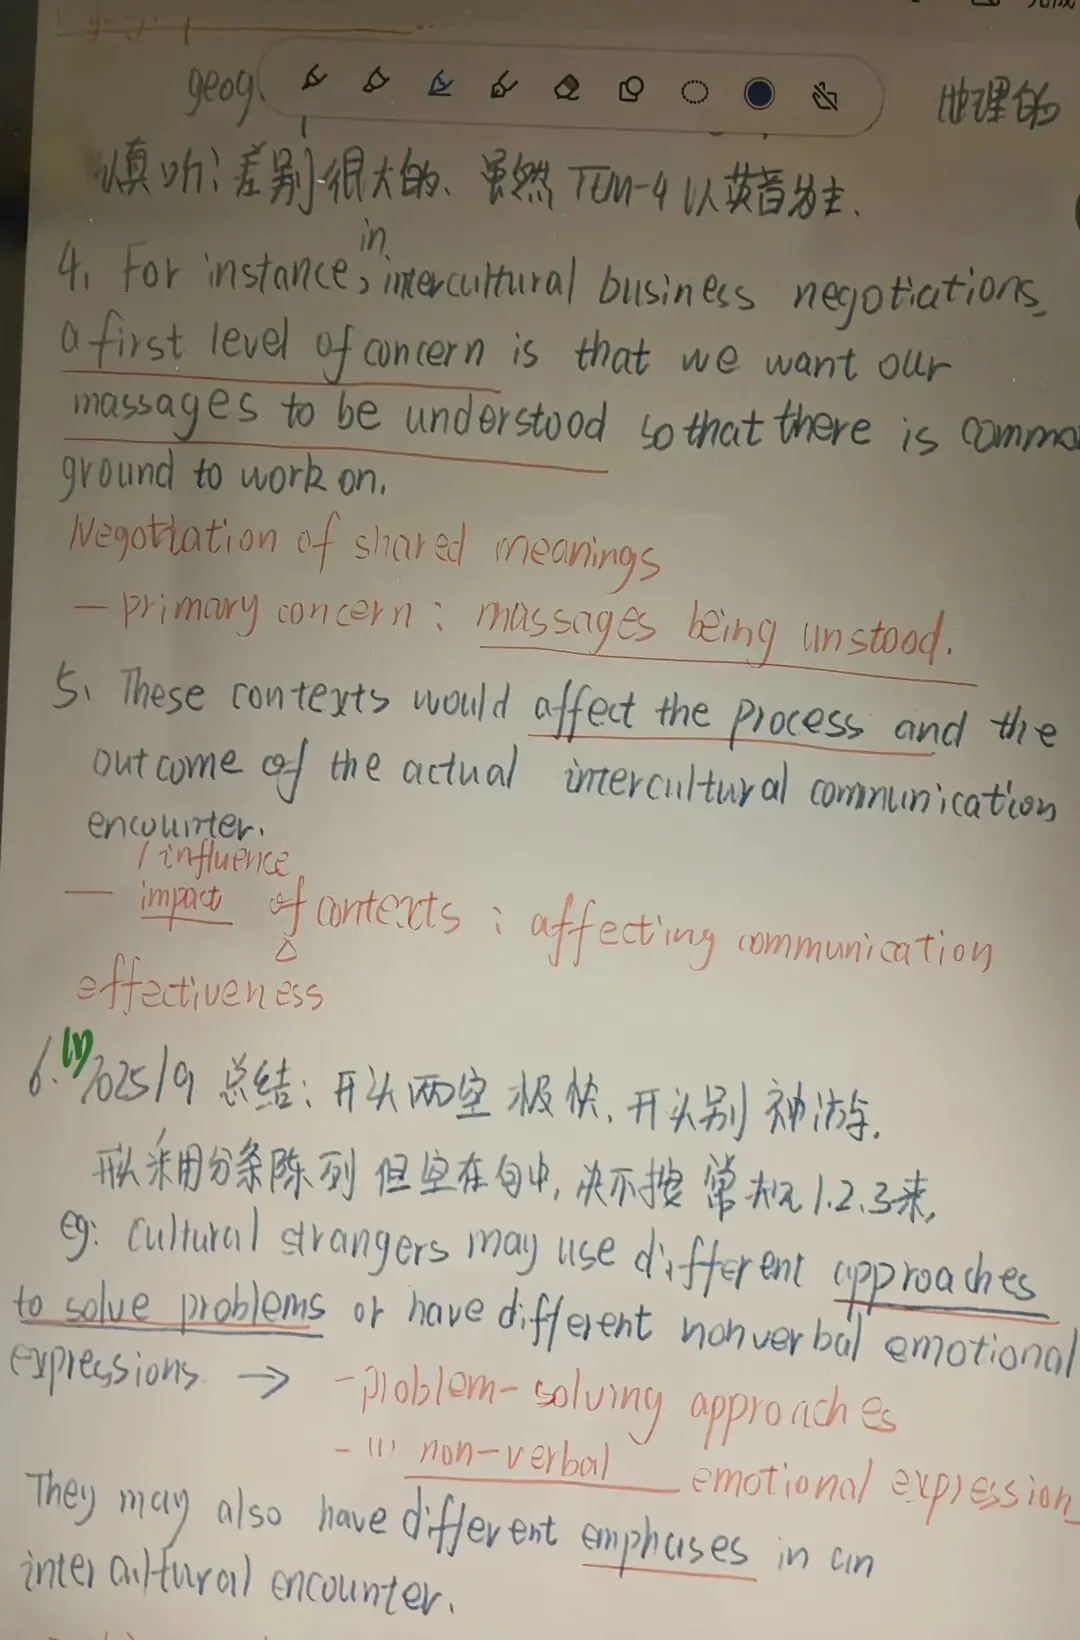 geog 地理的
慎听:差别很大的、虽然 TEM-4 以英音为主.
4. For instance, in intercultural business negotiations,
a first level of concern is that we want our
massages to be understood so that there is commo
ground to work on.
Negotiation of shared meanings
— primary concern : massages being unstood.
5. These contexts would affect the process and the
outcome of the actual intercultural communication
encounter.
/ influence
— impact of contexts : affecting communication
effectiveness
6. (1) 2025/9 总结: 开头两空极快, 开头别神游.
形式采用分条陈列 但空在句中, 决不按常规1.2.3来,
eg: cultural strangers may use different approaches
to solve problems or have different nonverbal emotional
expressions → - problem-solving approaches
- (1) non-verbal emotional expression
They may also have different emphases in an
intercultural encounter.